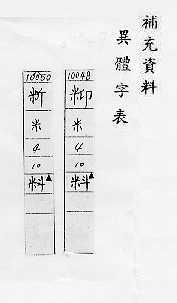 補充資料
異體字表
10049
籾
米
4
10
料
10050
粐
米
4
10
料